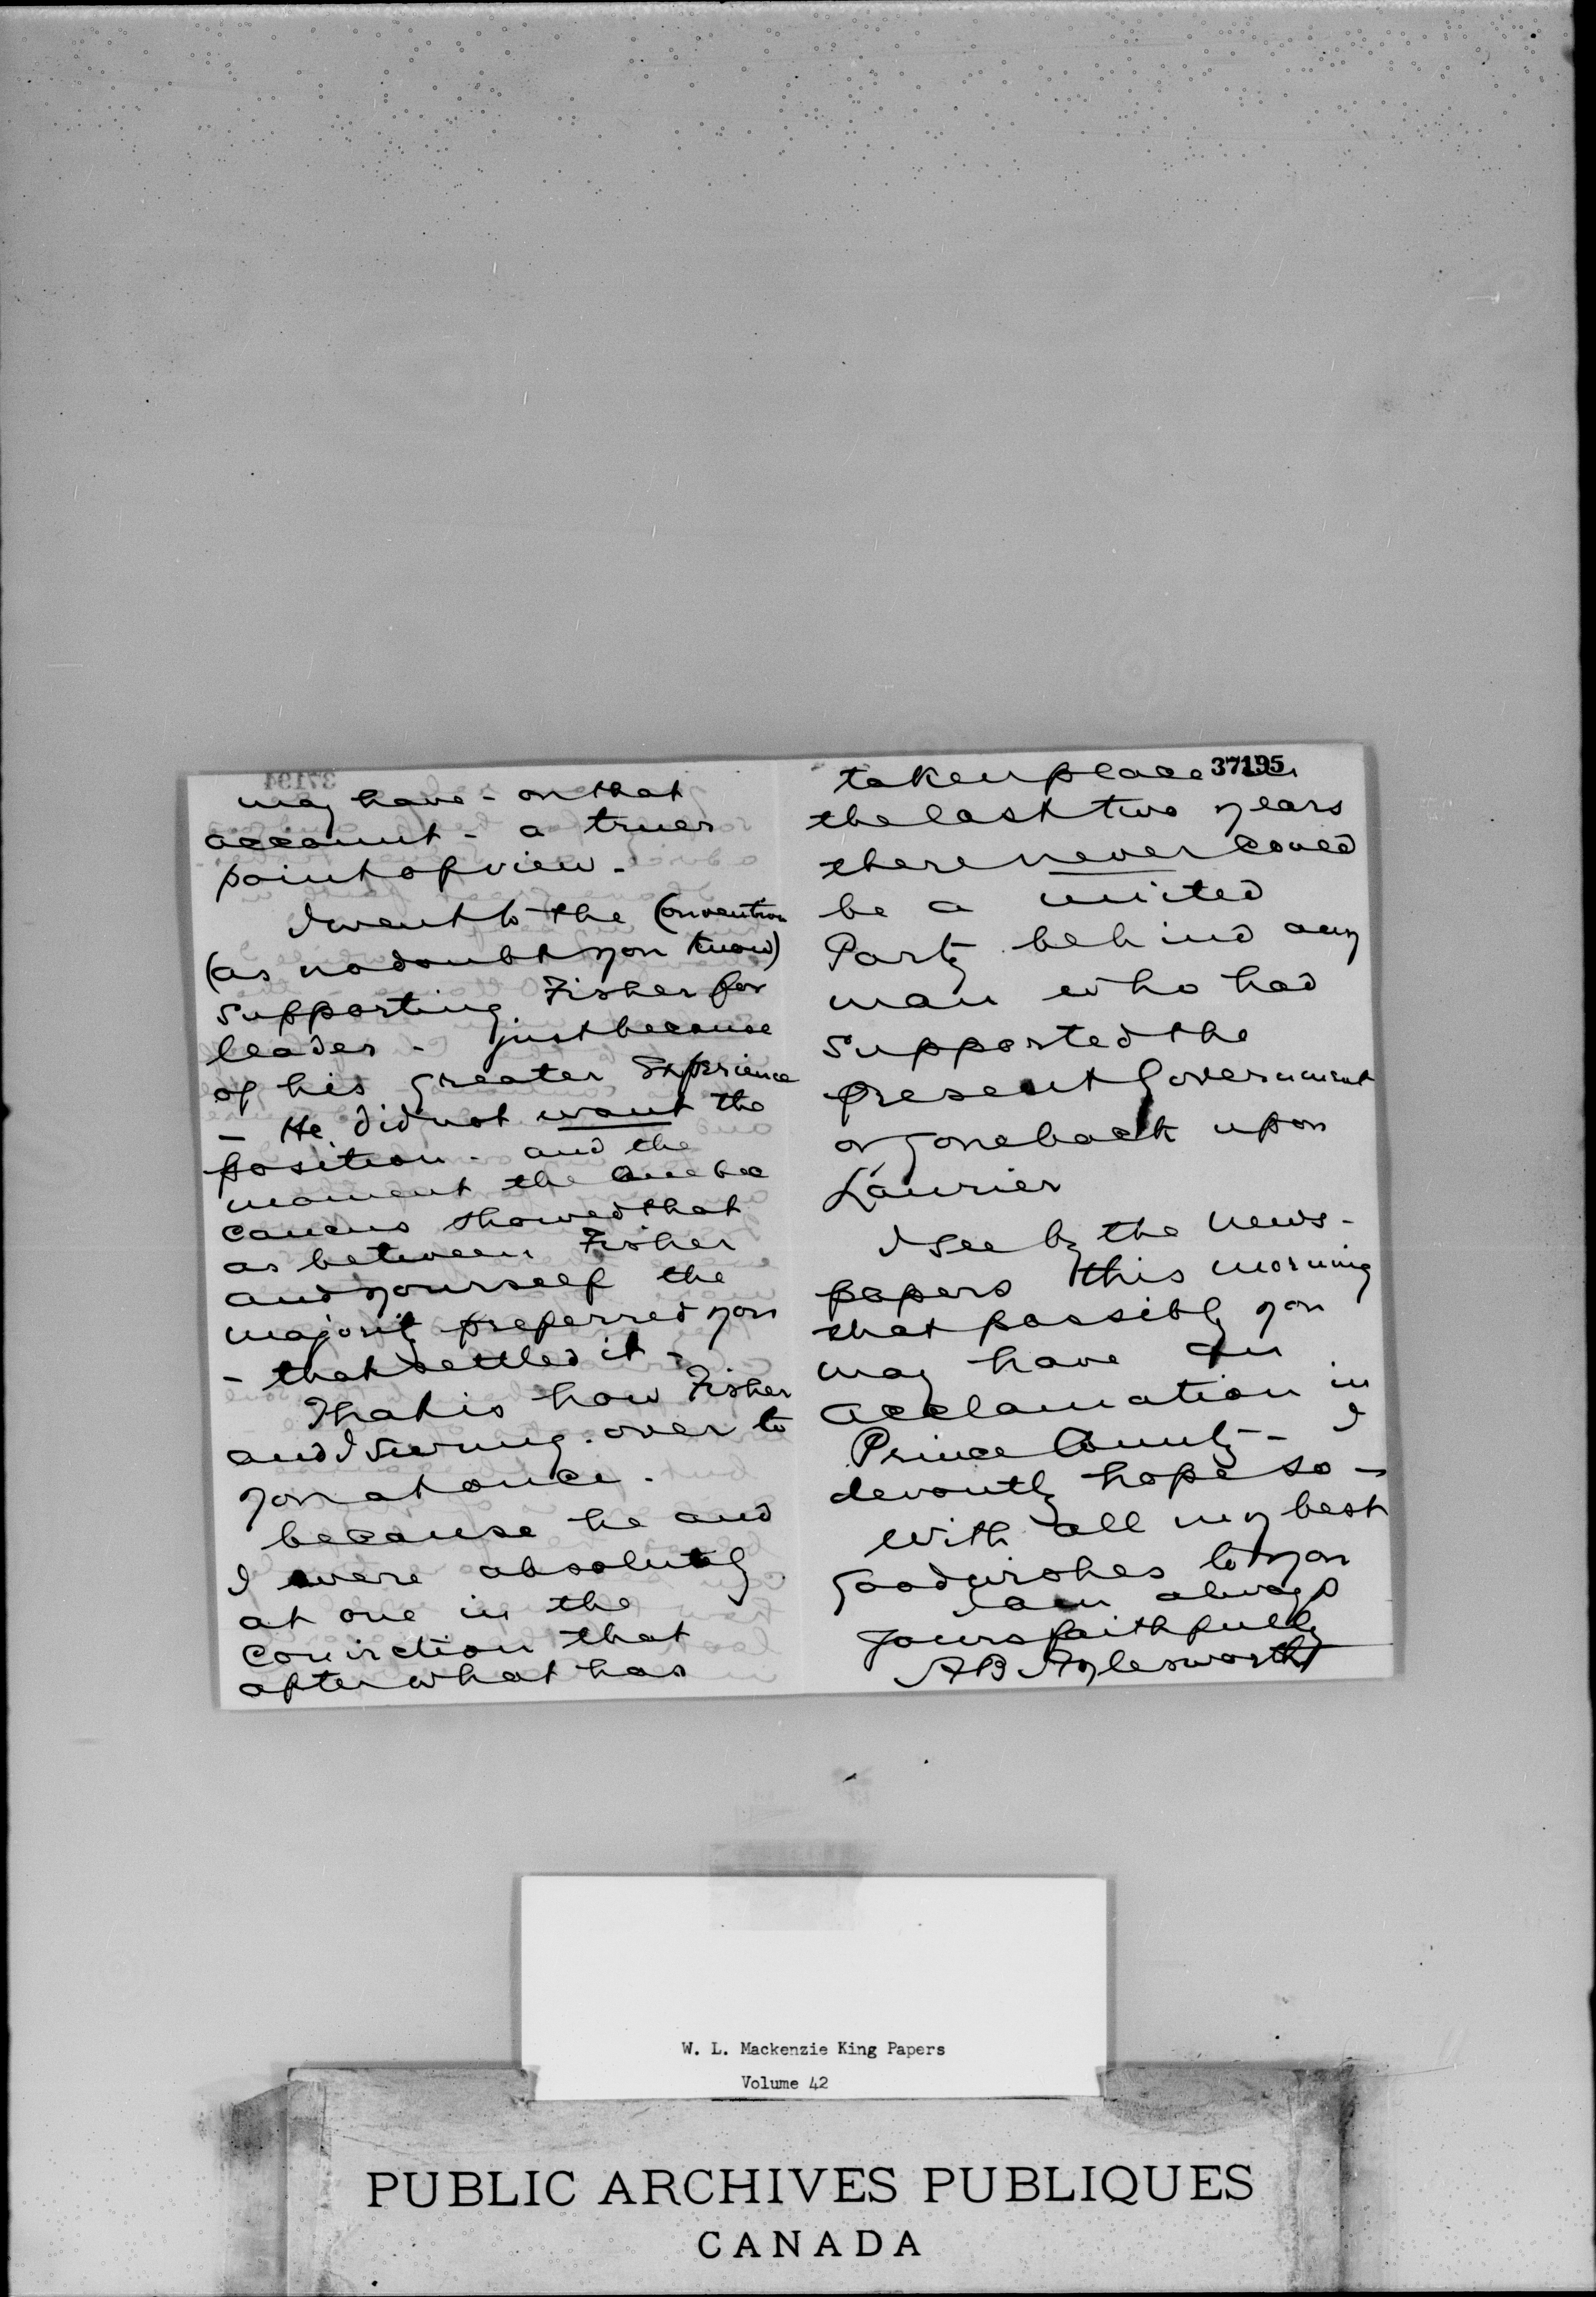 may have - on that
account - a truer
point of view -
I went to the Convention
(as no doubt you know)
supporting Fisher for
leader - just because
of his greater Experience
- He did not want the
position - and the
moment the Quebec
caucus showed that
as between Fisher
and yourself the
majority preferred you
- that settled it -
That is how Fisher
and I swung over to
you at once.
because he and
I were absolutely
at one in the
conviction that
after what has
37195
taken place in
the last two years
there never could
be a united
Party behind any
man who had
supported the
present Government
or gone back upon
Laurier
I see by the news-
papers this morning
that possibly you
may have an
acclamation in
Prince County - I
devoutly hope so -
With all my best
good wishes to you
I am always
yours faithfully
A B Aylesworth
W. L. Mackenzie King Papers
Volume 42
PUBLIC ARCHIVES PUBLIQUES
CANADA